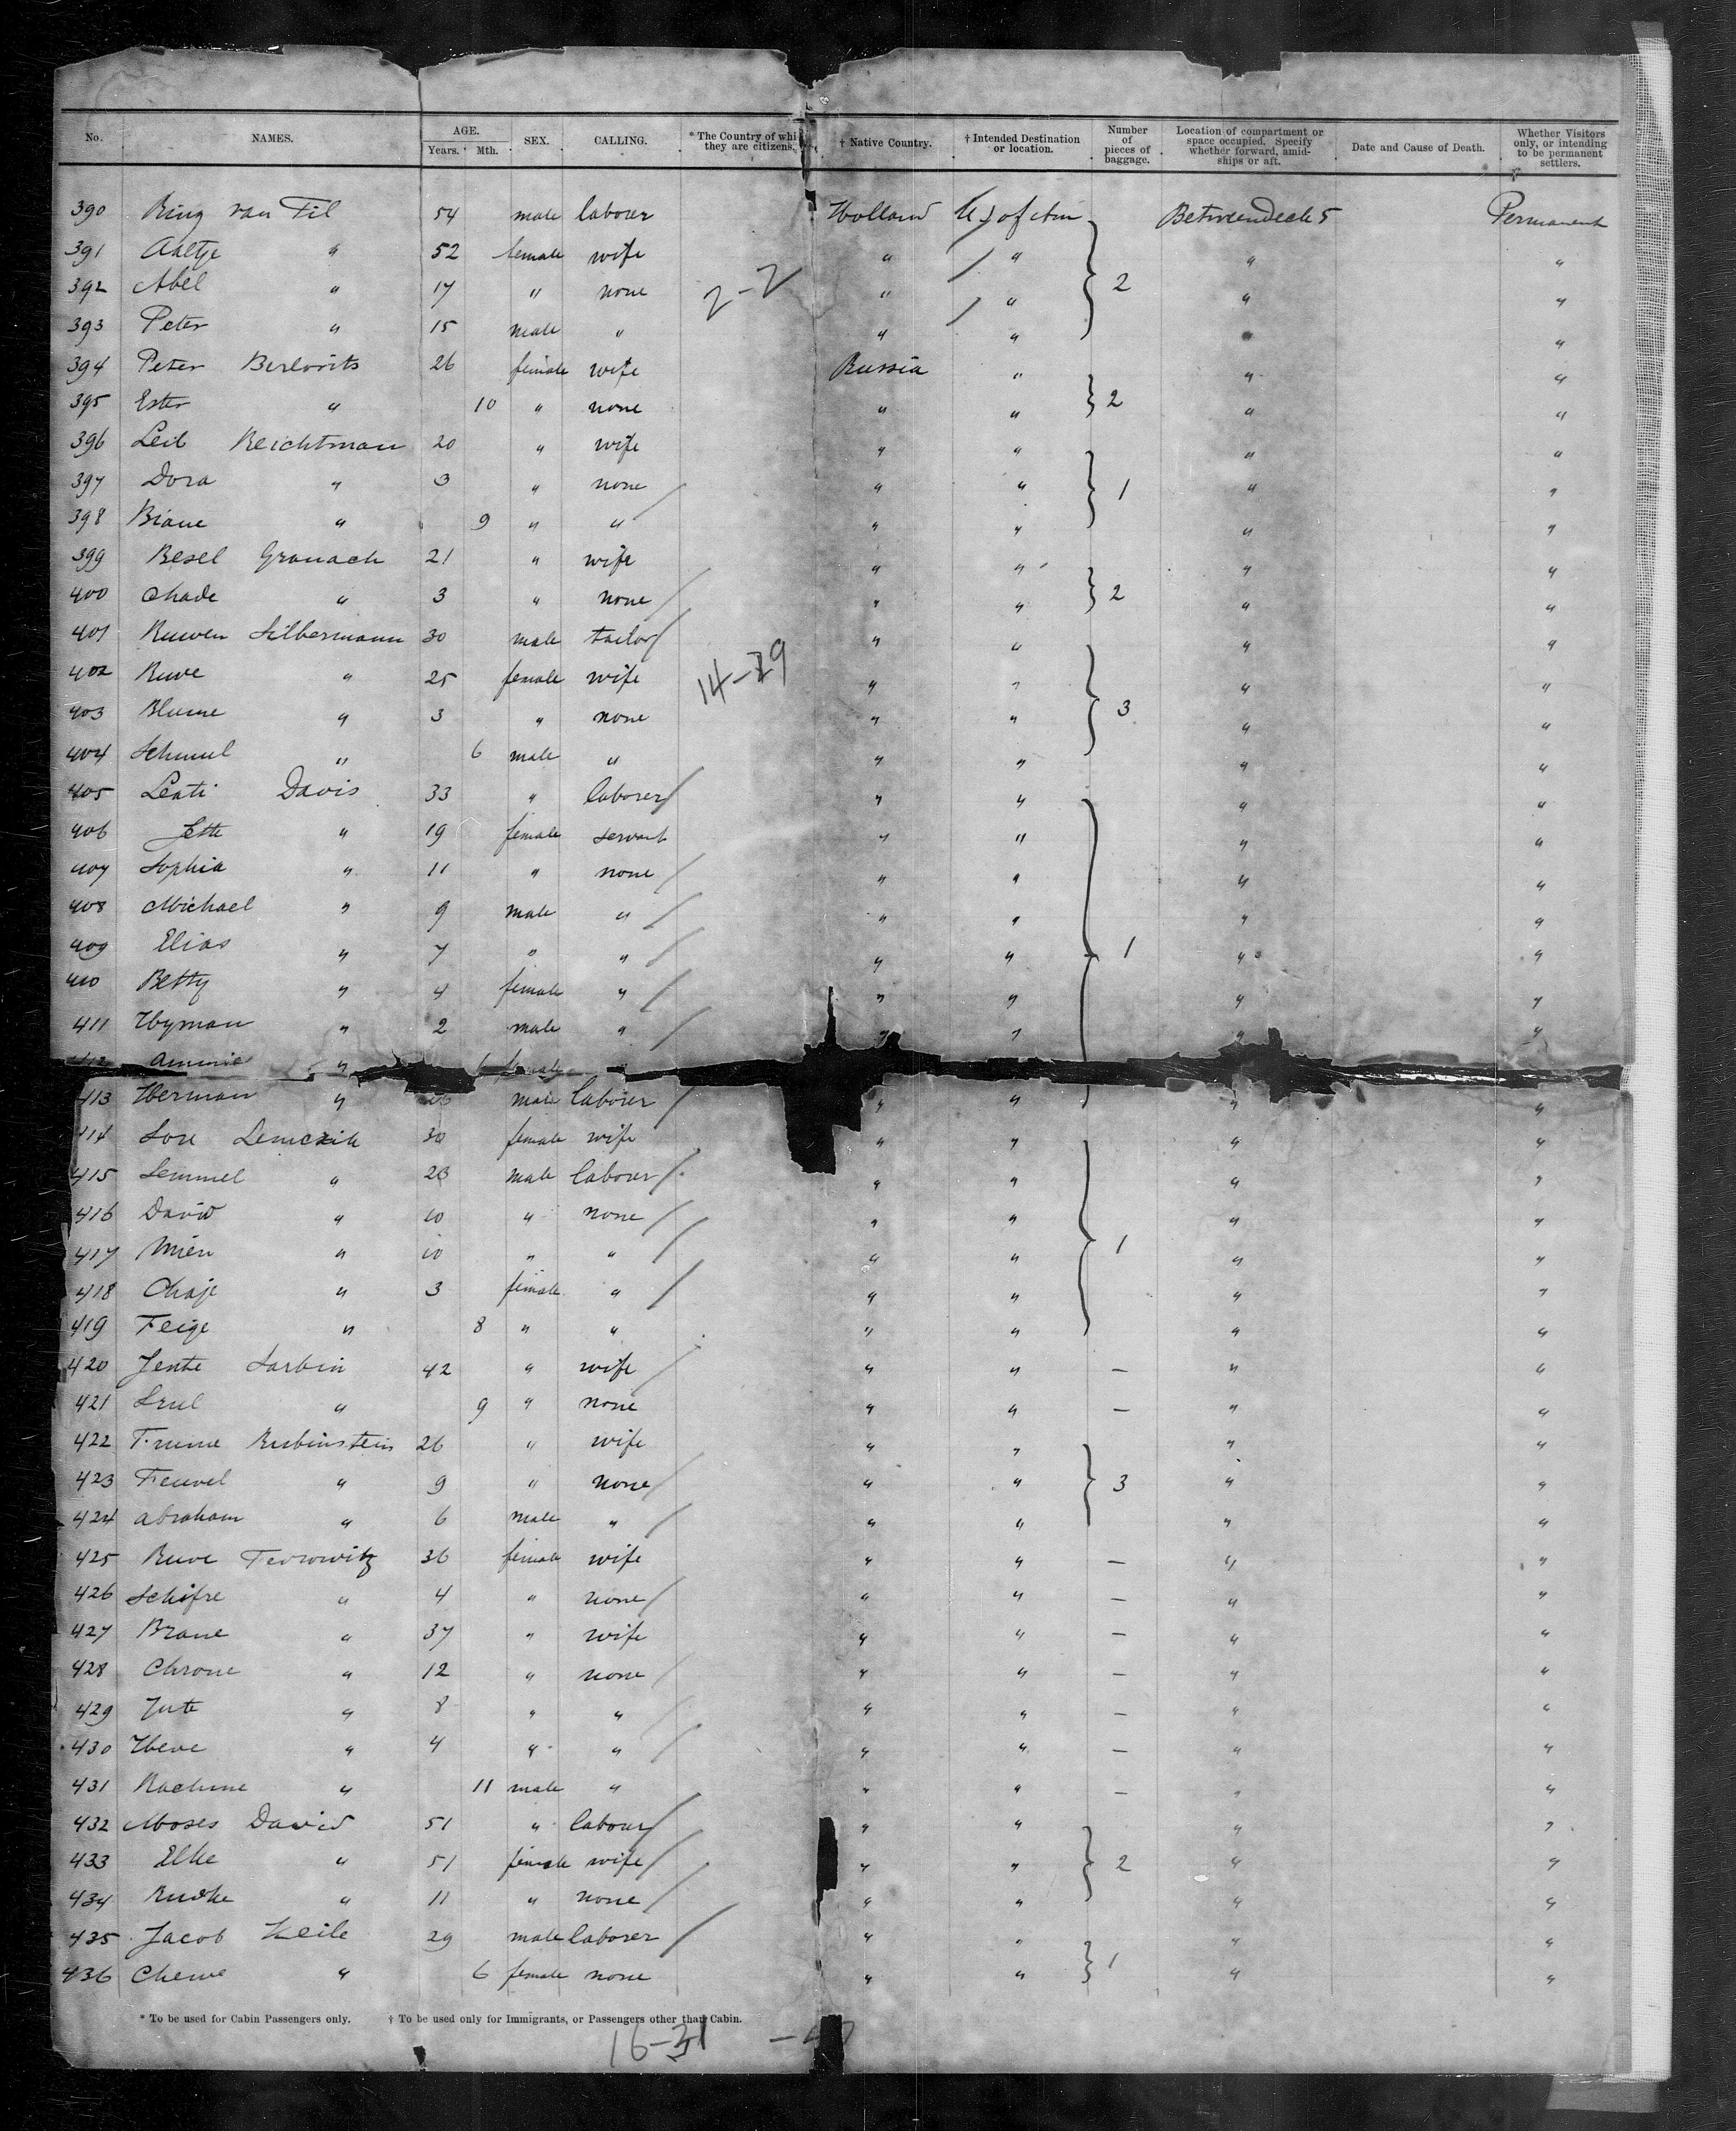 No. NAMES. AGE. Years. Mth. SEX. CALLING. * The Country of whi they are citizens. † Native Country. † Intended Destination or location. Number of pieces of baggage. Location of compartment or space occupied. Specify whether forward, amid-ships or aft. Date and Cause of Death. Whether Visitors only, or intending to be permanent settlers.
390 Ring van Til 54 male laborer Holland Betweendeck 5 Permanent
391 Aaltje " 52 female wife " " " "
392 Abel " 17 " none 2-2 " " 2 " "
393 Peter " 15 male " " " "
394 Peter Berlovits 26 female wife Russia " " "
395 Ester " 10 " none " " 2 " "
396 Leib Reichtman 20 " wife " " " "
397 Dora " 3 " none " " 1 " "
398 Biane " 9 " " " " " "
399 Besel Granach 21 " wife " " " "
400 Chade " 3 " none " " 2 " "
401 Ruwen Silbermann 30 male tailor " " " "
402 Ruwe " 25 female wife 14-29 " " " "
403 Blume " 3 " none " " 3 " "
404 Schmul " 6 male " " " " "
405 Leati Davis 33 " laborer " " " "
406 Jette " 19 female servant " " " "
407 Sophia " 11 " none " " " "
408 Michael " 9 male " " " " "
409 Elias " 7 " " " " 1 " "
410 Betty " 4 female " " " " "
411 Hyman " 2 male " " " " "
" female
413 Herman " male laborer " " " "
414 Sore Lemczik 30 female wife " " " "
415 Lemmel " 28 male laborer " " " "
416 David " 10 " none " " " "
417 " 10 " " " " 1 " "
418 Chaje " 3 female " " " " "
419 Feige " 8 " " " " " "
420 Jente Sarbin 42 " wife " " — " "
421 Srul " 9 " none " " — " "
422 Frume Rubinstein 26 " wife " " " "
423 Feuvel " 9 " none " " 3 " "
424 abraham " 6 male " " " " "
425 Ruve 36 female wife " " — " "
426 Schifre " 4 " none " " — " "
427 Brane " 37 " wife " " — " "
428 Chrone " 12 " none " " — " "
429 Jute " 8 " " " " — " "
430 Heve " 4 " " " " — " "
431 " 11 male " " " — " "
432 Moses David 51 " labour " " " "
433 Elke " 51 female wife " " 2 " "
434 " 11 " none " " " "
435 Jacob Keile 29 male laborer " " " "
436 Chewe " 6 female none " " 1 " "
* To be used for Cabin Passengers only. † To be used only for Immigrants, or Passengers other than Cabin.
16-31